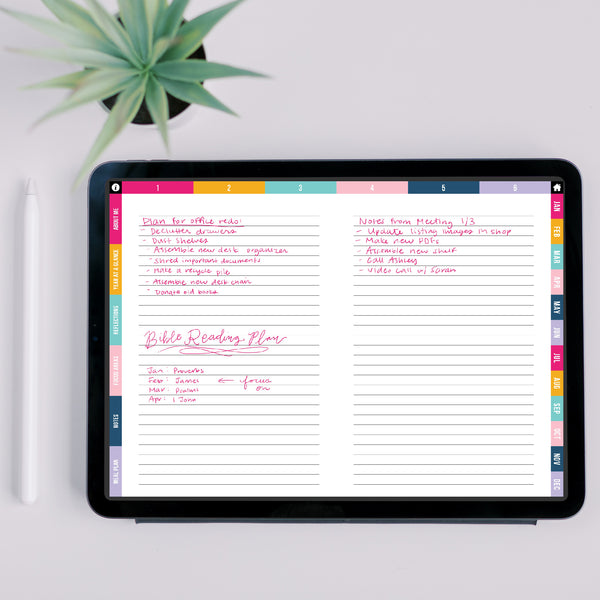 1 2 3 4 5 6
ABOUT ME
YEAR AT A GLANCE
REFLECTIONS
FOCUS AREAS
NOTES
MEAL PLAN
Plan for office redo:
- Declutter drawers
- Dust shelves
- Assemble new desk organizer
- Shred important documents
- Make a recycle pile
- Assemble new desk chair
- Donate old books
Bible Reading Plan
Jan: Proverbs
Feb: James ← focus
Mar: Psalms on
Apr: 1 John
Notes from Meeting 1/3
- Update listing images in shop
- Make new PDFs
- Assemble new shelf
- Call Ashley
- Video call w/ Sarah
JAN
FEB
MAR
APR
MAY
JUN
JUL
AUG
SEP
OCT
NOV
DEC